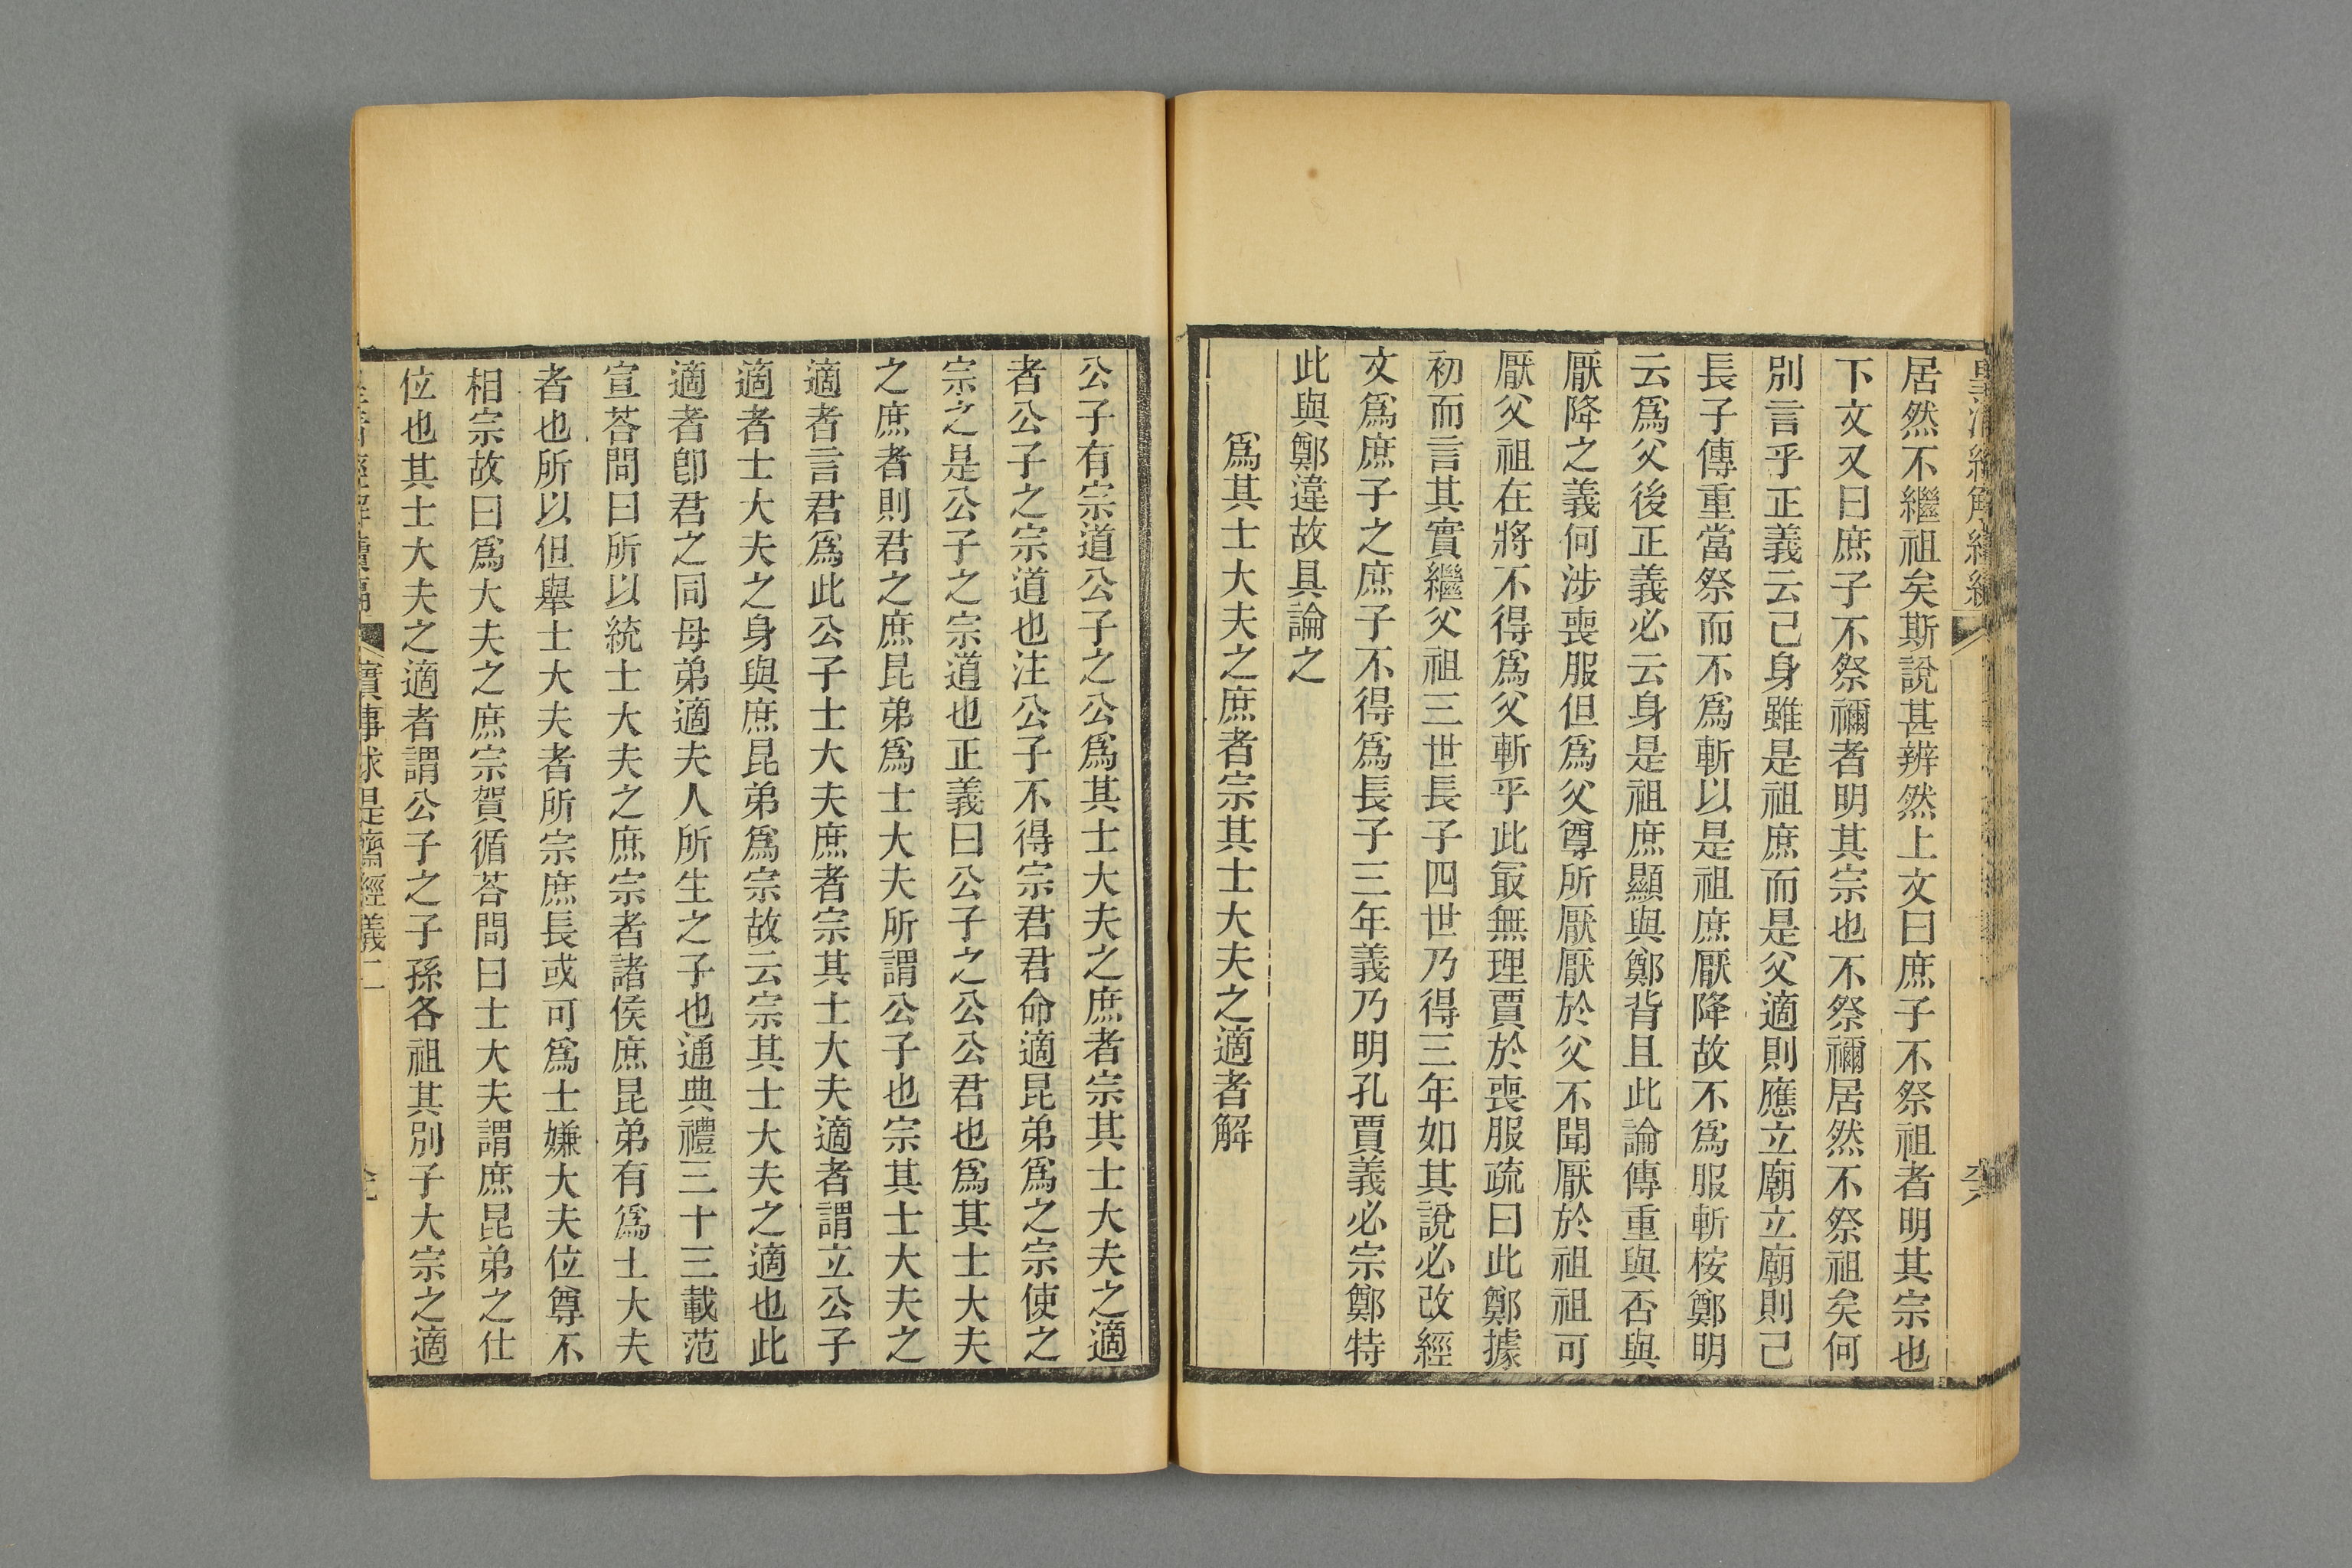 居然不繼祖矣斯說甚辨然上文曰庶子不祭祖者明其宗也
下文又曰庶子不祭禰者明其宗也不祭禰居然不祭祖矣何
別言乎正義云己身雖是祖庶而是父適則應立廟立廟則己
長子傳重當祭而不爲斬以是祖庶厭降故不爲服斬桉鄭明
云爲父後正義必云身是祖庶顯與鄭背且此論傳重與否與
厭降之義何涉喪服但爲父尊所厭厭於父不聞厭於祖祖可
厭父祖在將不得爲父斬乎此最無理賈於喪服疏曰此鄭據
初而言其實繼父祖三世長子四世乃得三年如其說必改經
文爲庶子之庶子不得爲長子三年義乃明孔賈義必宗鄭特
此與鄭違故具論之
爲其士大夫之庶者宗其士大夫之適者解
公子有宗道公子之公爲其士大夫之庶者宗其士大夫之適
者公子之宗道也注公子不得宗君君命適昆弟爲之宗使之
宗之是公子之宗道也正義曰公子之公公君也爲其士大夫
之庶者則君之庶昆弟爲士大夫所謂公子也宗其士大夫之
適者言君爲此公子士大夫庶者宗其士大夫適者謂立公子
適者士大夫之身與庶昆弟爲宗故云宗其士大夫之適也此
適者卽君之同母弟適夫人所生之子也通典禮三十三載范
宣荅問曰所以統士大夫之庶宗者諸侯庶昆弟有爲士大夫
者也所以但舉士大夫者所宗庶長或可爲士嫌大夫位尊不
相宗故曰爲大夫之庶宗賀循荅問曰士大夫謂庶昆弟之仕
位也其士大夫之適者謂公子之子孫各祖其別子大宗之適
實事求是齋經義二